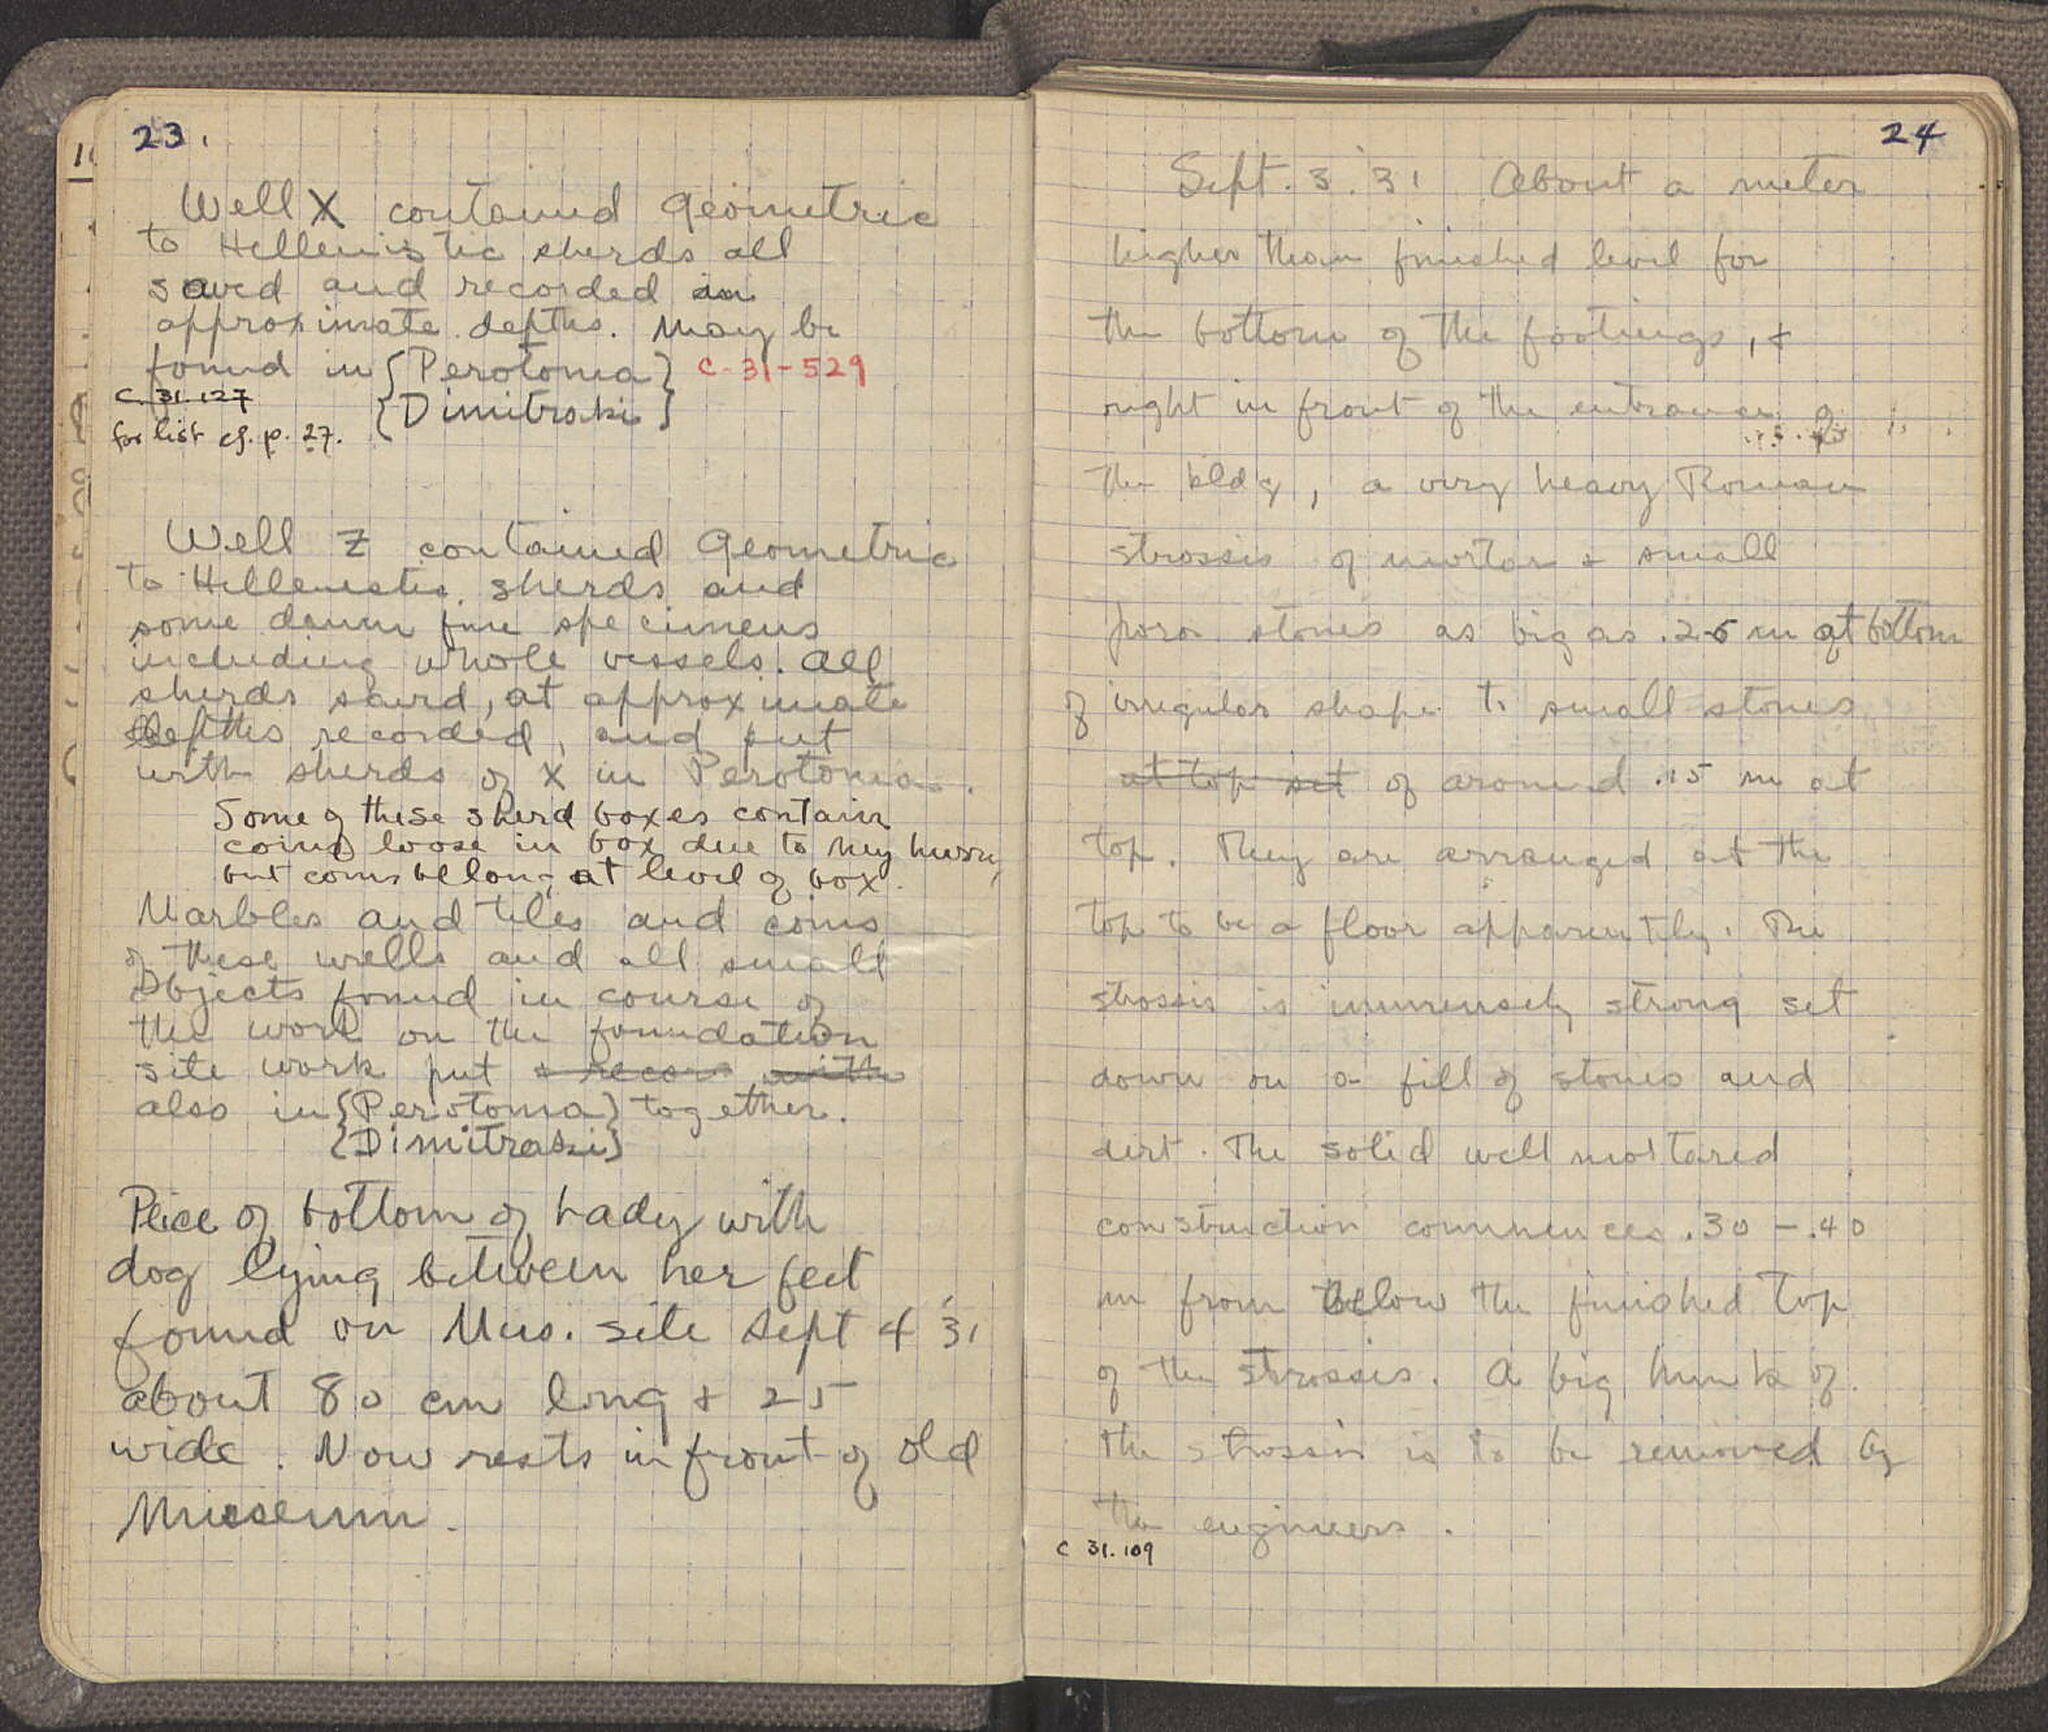 23.
Well X contained Geometric
to Hellenistic sherds all
saved and recorded in
approximate depths. May be
found in {Perotoma} C-31-529
C. 31.127 {Dimitraki}
for list cf. p. 27.
Well Z contained Geometric
to Hellenistic sherds and
some damn fine specimens
including whole vessels. All
sherds saved, at approximate
depths recorded, and put
with sherds of X in Perotoma.
Some of these sherd boxes contain
coins loose in box due to my hurry,
but coins belong at level of box.
Marbles and tiles and coins
of these wells and all small
Objects found in course of
the work on the foundation
site work put & recor with
also in {Perotoma} together.
{Dimitraki}
Peice of bottom of Lady with
dog lying between her feet
found on Mus. site Sept 4 '31
about 80 cm long & 25
wide. Now rests in front of old
Museum.
24
Sept. 3. '31 About a meter
higher than finished level for
the bottom of the footings, &
right in front of the entrance of
the bldg, a very heavy Roman
strossis of mortar & small
poros stones as big as .25 m at bottom
of irregular shape to small stones
at top set of around .15 m at
top. They are arranged at the
top to be a floor apparently. The
strossis is immensely strong set
down on a fill of stones and
dirt. The solid well mortared
construction commences .30 - .40
m from below the finished top
of the strossis. A big hunk of
the strossis is to be removed by
the engineers.
C 31.109